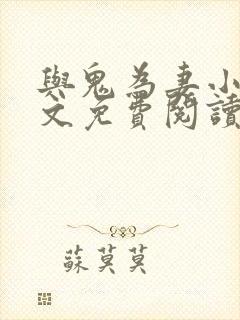 與鬼為妻小
文免費閱讀
蘇莫莫